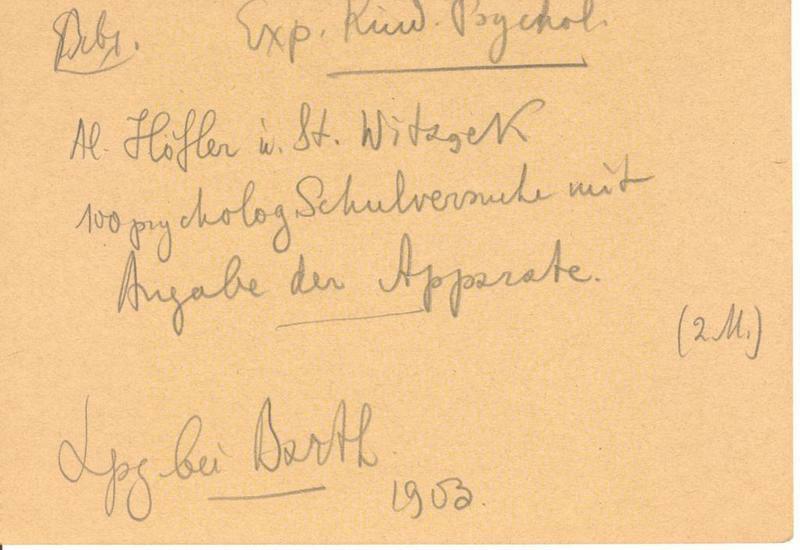 Exp. Kind. Psychol.
Al. Höfler u. St. Witasek
100 psycholog. Schulversuche mit
Angabe der Apparate.
(2 M.)
Lpg bei Barth
1903.